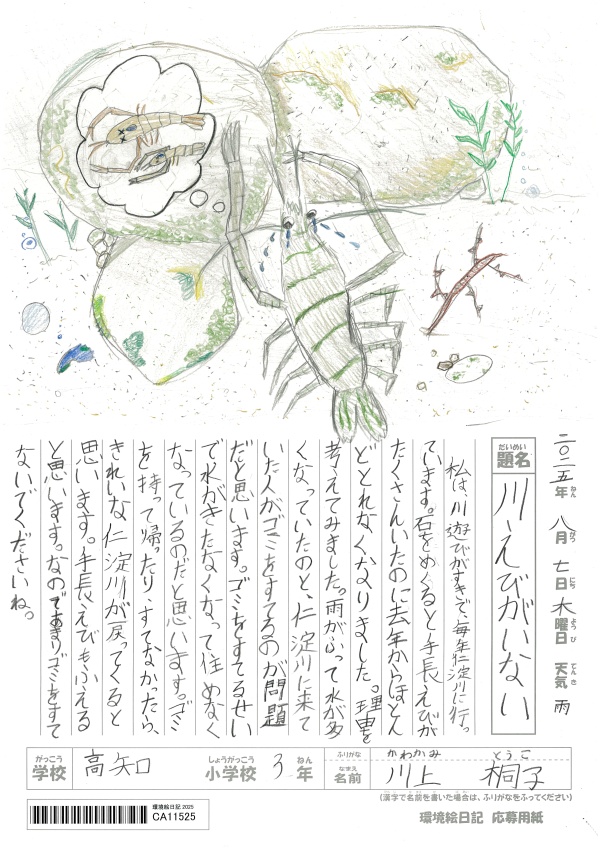 二〇二五年ねん 八月がつ 七日にち 木曜日ようび 天気てんき 雨
題名だいめい 川えびがいない
私は、川遊びがすきで、毎年仁淀川に行っ
ています。石をめくると手長えびが
たくさんいたのに去年からほとん
どとれなくなりました。理由を
考えてみました。雨がふって水が多
くなっていたのと、仁淀川に来て
いた人がゴミをすてるのが問題
だと思います。ゴミをすてるせい
で水がきたなくなって住めなく
なっているのだと思います。ゴミ
を持って帰ったり、すてなかったら、
きれいな仁淀川が戻ってくると
思います。手長えびもふえる
と思います。なのであまりゴミをすて
ないでくださいね。
学校がっこう 高知 小学校しょうがっこう 3年ねん ふりがな かわかみ とうこ
名前なまえ 川上 桐子
(漢字で名前を書いた場合は、ふりがなをふってください)
環境絵日記 2025
CA11525
環境絵日記 応募用紙